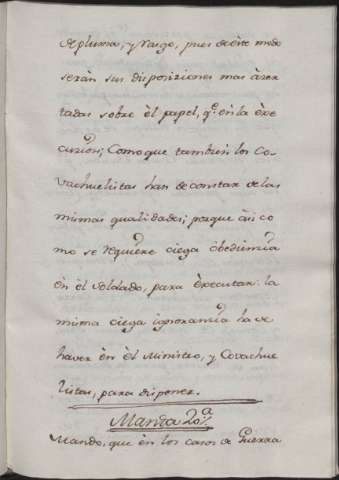 de pluma, y Vasgo, pues de éste modo
serán sus disposiziones mas àzer
tadas sobre èl papel, q.e en la èxe
cuzion; Como que tambien los Co
vachuelistas han de constar de las
mismas qualidades; porque asi co
mo se requiere ciega obediencia
èn èl Soldado, para èxecutar: la
misma ciega ignorancia ha de
haver èn èl Ministro, y Covachue
listas, para disponer.
Manda 20.a
Mando, que èn los casos de Guerra